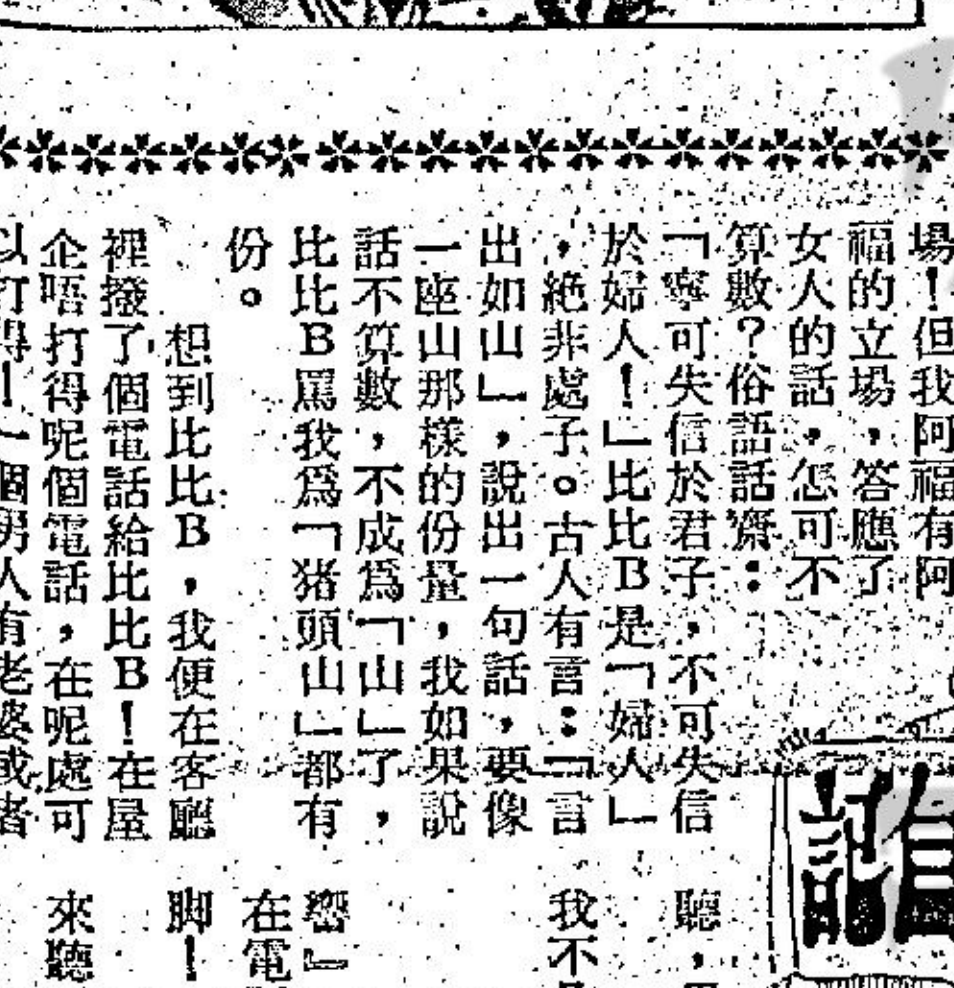 場！但我阿福有阿
福的立場，答應了
女人的話，怎可不
算數？俗語話齋：
「寧可失信於君子，不可失信
於婦人！」比比B是「婦人」
，絕非處子。古人有言：「言
出如山」，說出一句話，要像
一座山那樣的份量，我如果說
話不算數，不成爲「山」了，
比比B罵我爲「猪頭山」都有
份。
想到比比B，我便在客廳
裡撥了個電話給比比B！在屋
企唔打得呢個電話，在呢處可
以打得！一個男人有老婆或者
聽，
我不
響」
在電
脚！
來聽